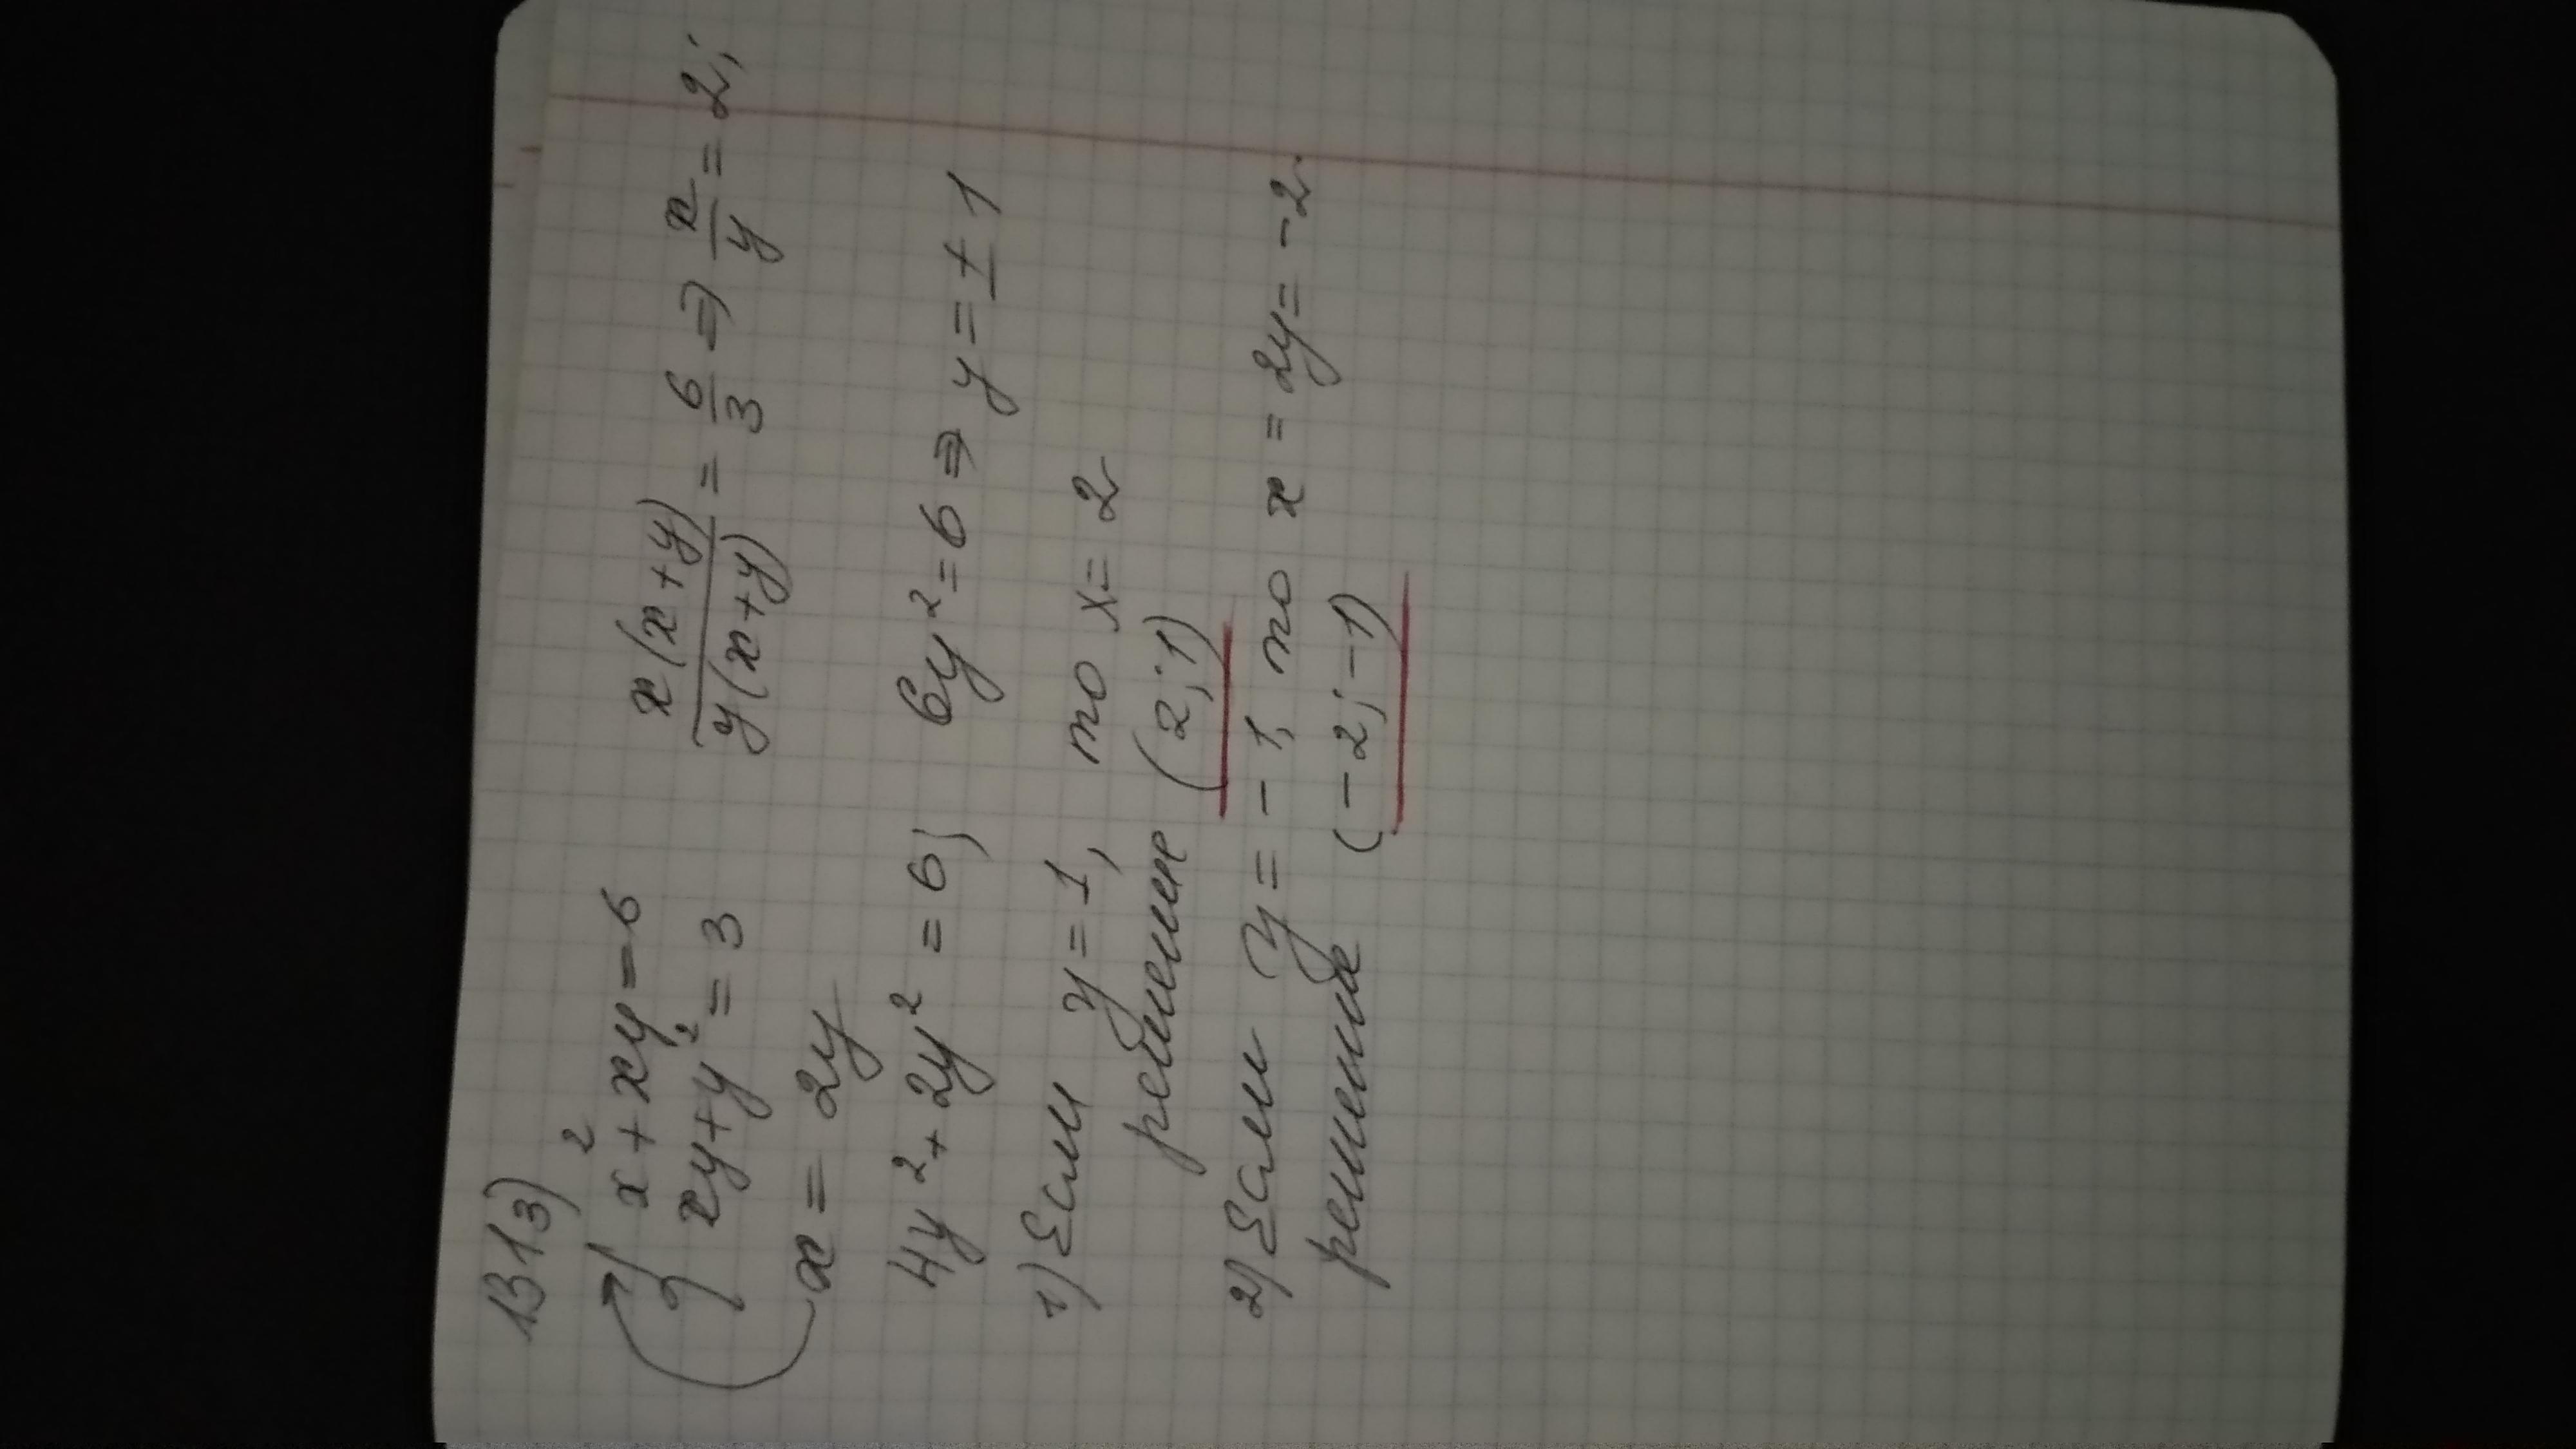 1313)
{ x² + xy = 6
xy + y² = 3
x(x+y)/y(x+y) = 6/3 ⇒ x/y = 2;
x = 2y
4y² + 2y² = 6; 6y² = 6 ⇒ y = ± 1
1) Если y = 1, то x = 2
решение (2; 1)
2) Если y = -1, то x = 2y = -2.
решение (-2; -1)